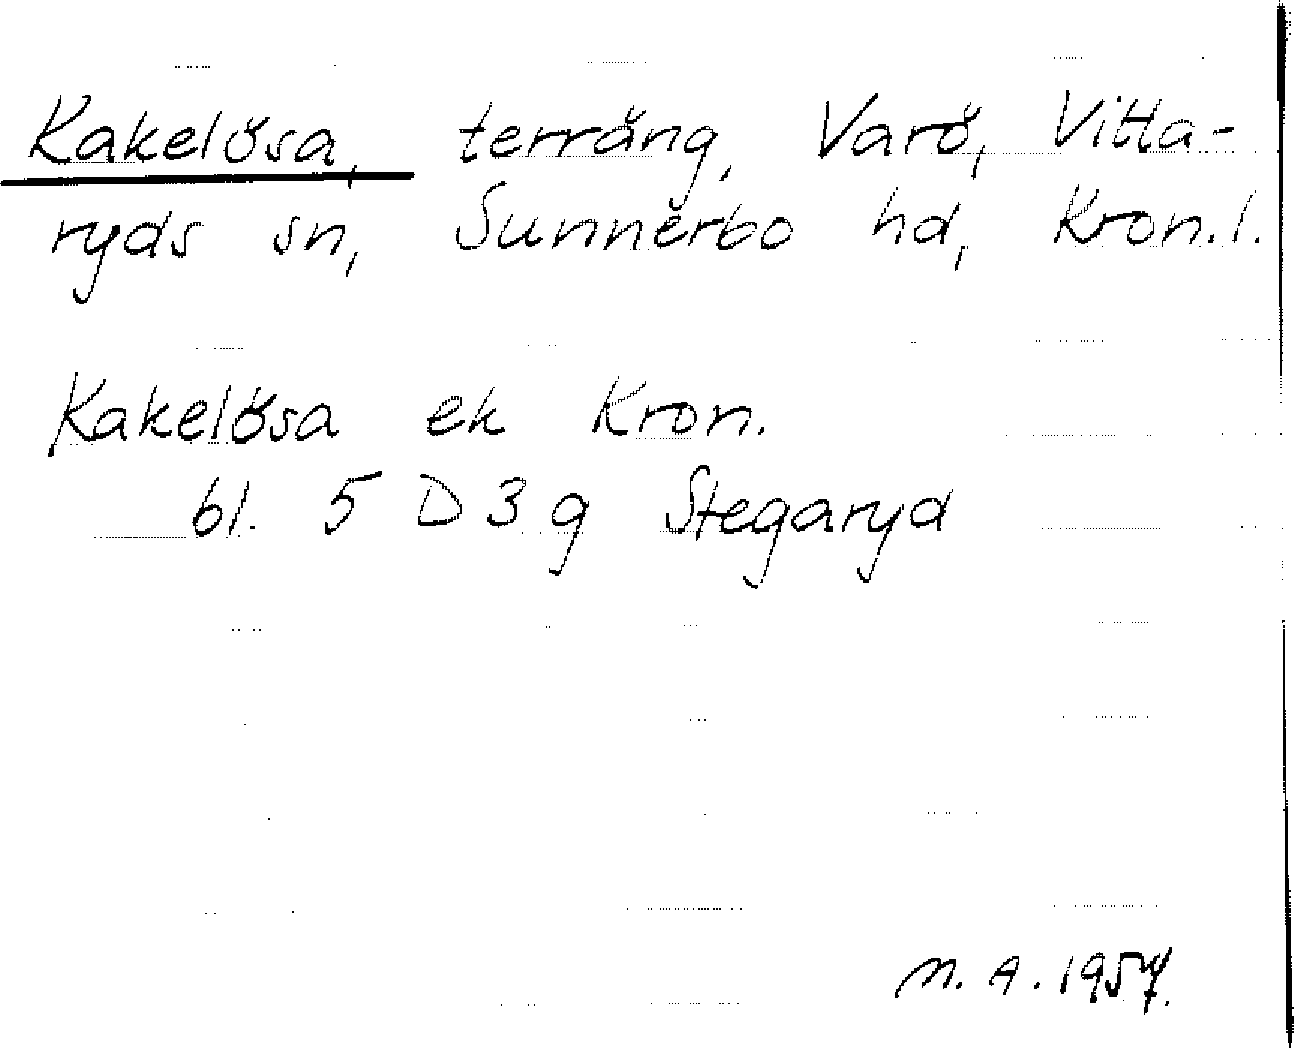 Kakelösa, terräng, Varö, Vitta-
ryds sn, Sunnerbo hd, Kron.l.
Kakelösa ek Kron.
bl. 5 D 3 g Stegaryd
N. A. 1957.